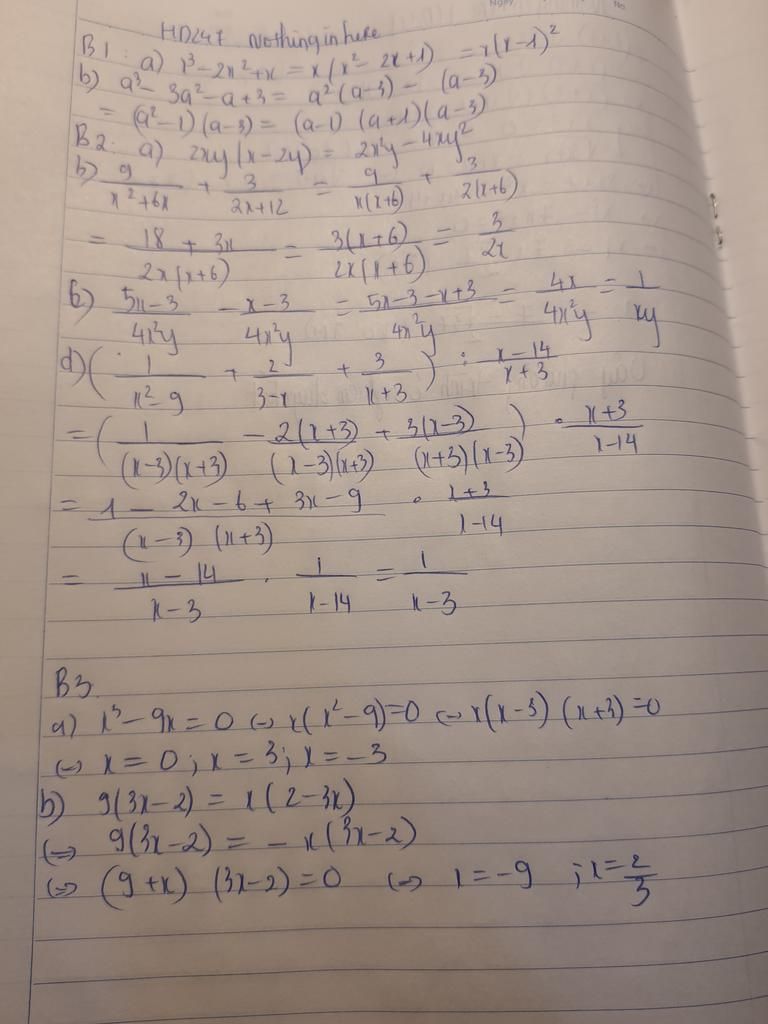 HD247 Nothing in here
B1: a) x³ - 2x² + x = x(x² - 2x + 1) = x(x - 1)²
b) a³ - 3a² - a + 3 = a²(a - 3) - (a - 3)
= (a² - 1)(a - 3) = (a - 1)(a + 1)(a - 3)
B2: a) 2xy(x - 2y) = 2x²y - 4xy²
b) 9/(x² + 6x) + 3/(2x + 12) = 9/(x(x + 6)) + 3/(2(x + 6))
= (18 + 3x)/(2x(x + 6)) = 3(x + 6)/(2x(x + 6)) = 3/(2x)
(5x - 3)/(4x²y) - (x - 3)/(4x²y) = (5x - 3 - x + 3)/(4x²y) = 4x/(4x²y) = 1/(xy)
d) (1/(x² - 9) + 2/(3 - x) + 3/(x + 3)) : (x - 14)/(x + 3)
= (1/((x - 3)(x + 3)) - 2(x + 3)/((x - 3)(x + 3)) + 3(x - 3)/((x + 3)(x - 3))) · (x + 3)/(x - 14)
= (1 - 2x - 6 + 3x - 9)/((x - 3)(x + 3)) · (x + 3)/(x - 14)
= (x - 14)/(x - 3) · 1/(x - 14) = 1/(x - 3)
B3.
a) x³ - 9x = 0 ⇔ x(x² - 9) = 0 ⇔ x(x - 3)(x + 3) = 0
⇔ x = 0 ; x = 3 ; x = -3
b) 9(3x - 2) = x(2 - 3x)
⇔ 9(3x - 2) = -x(3x - 2)
⇔ (9 + x)(3x - 2) = 0 ⇔ x = -9 ; x = 2/3